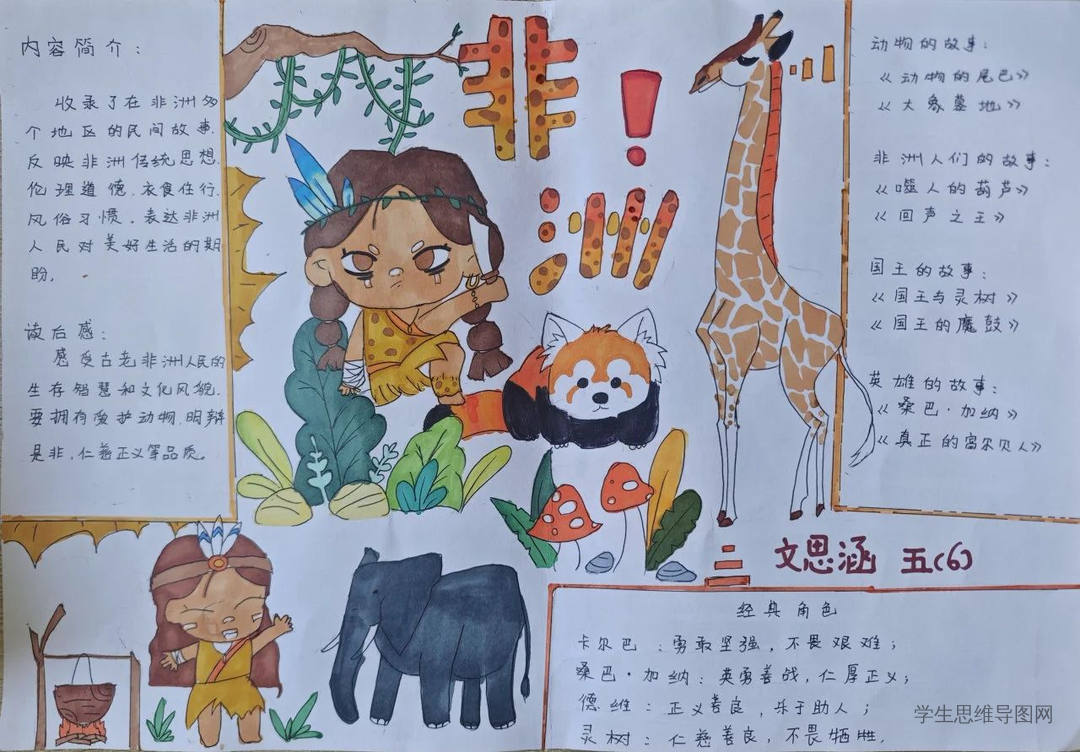 内容简介：
收录了在非洲多
个地区的民间故事.
反映非洲传统思想.
伦理道德.衣食住行.
风俗习惯。表达非洲
人民对美好生活的期
盼。
读后感：
感受古老非洲人民的
生存智慧和文化风貌.
要拥有爱护动物.明辨
是非.仁慈正义等品质。
非洲!
动物的故事：
《动物的尾巴》
《大象墓地》
非洲人们的故事：
《噬人的葫芦》
《回声之王》
国王的故事：
《国王与灵树》
《国王的魔鼓》
英雄的故事：
《桑巴·加纳》
《真正的富尔贝人》
文思涵 五(6)
经典角色
卡尔巴：勇敢坚强，不畏艰难；
桑巴·加纳：英勇善战，仁厚正义；
德维：正义善良，乐于助人；
灵树：仁慈善良，不畏牺牲.
学生思维导图网